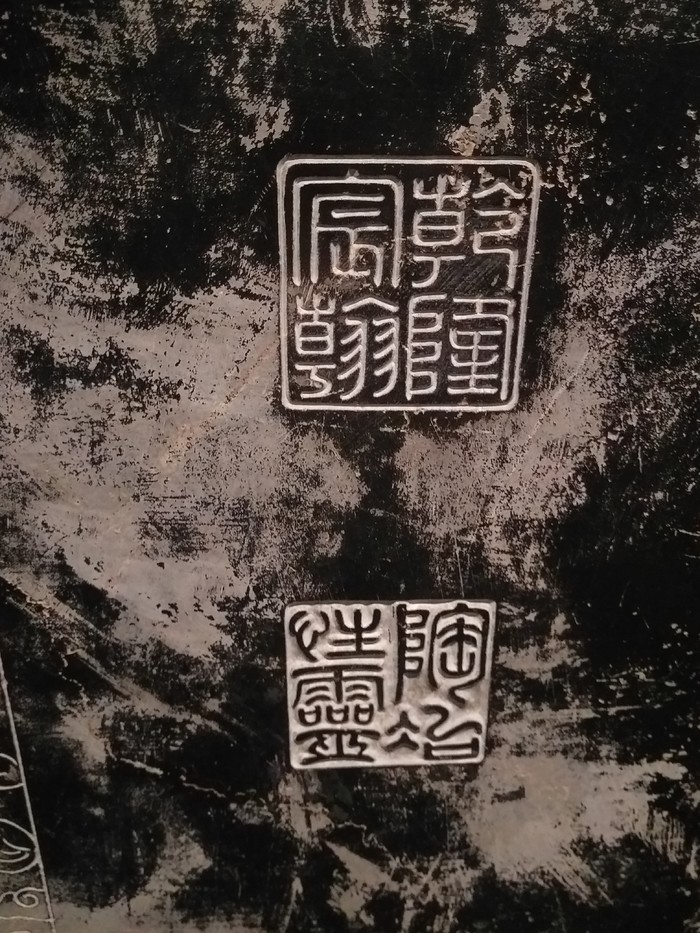 乾隆
宸翰
陶冶
性靈